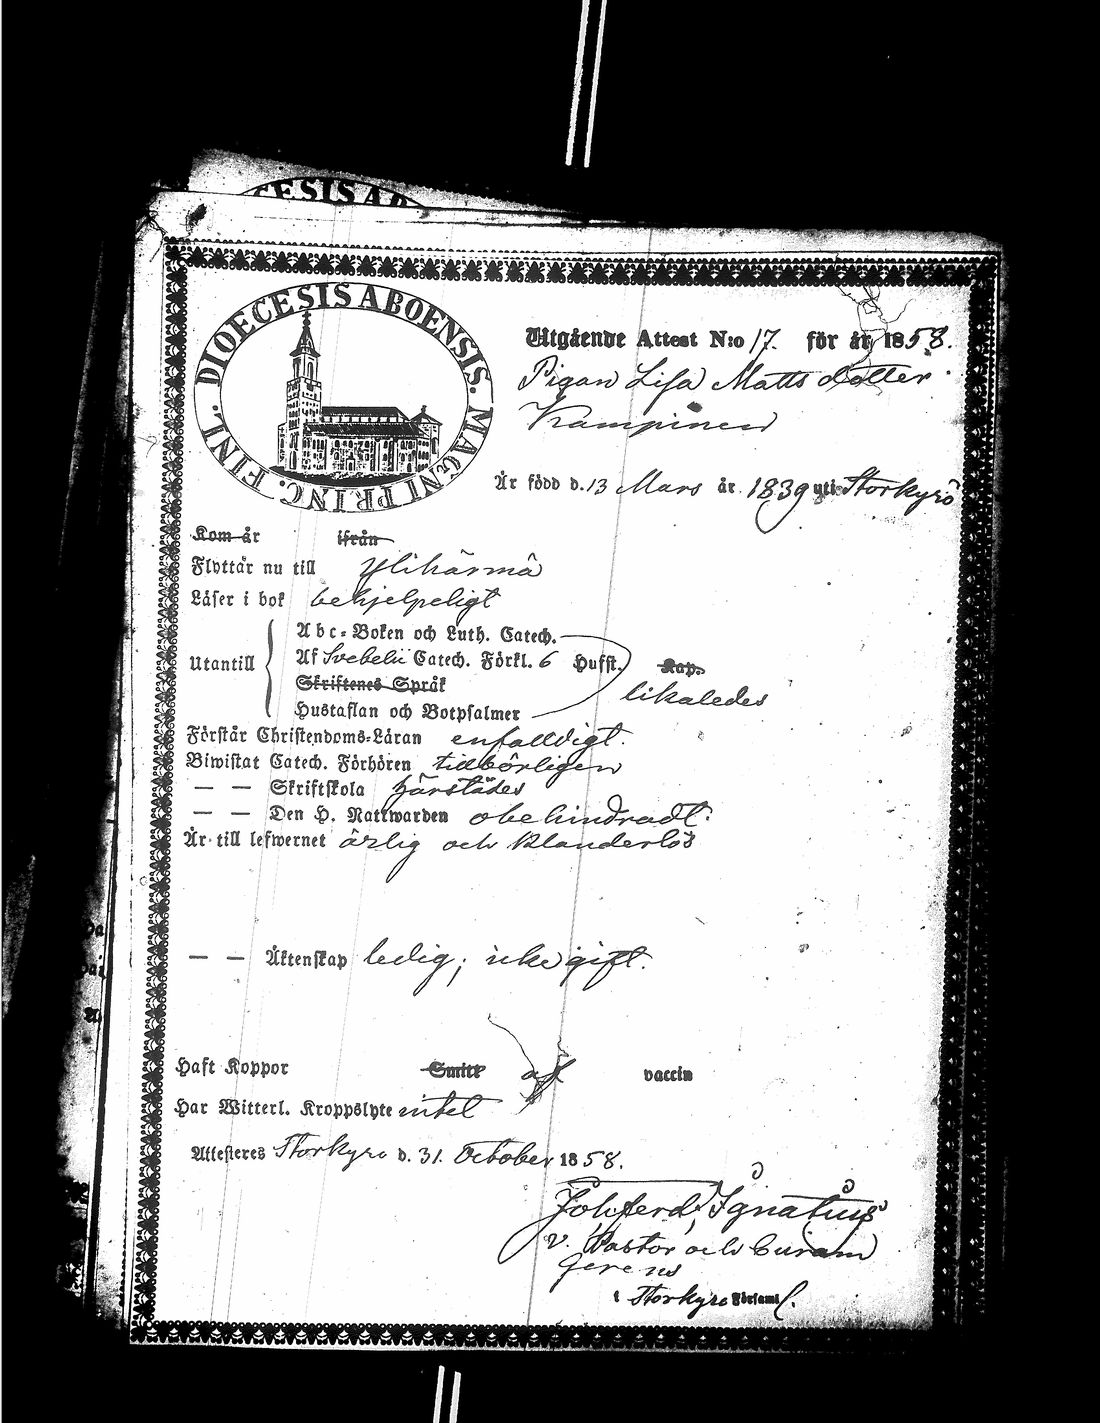 DIOECESIS AB
DIOECESIS ABOENSIS. MAGNI PRINC. FINL.
Utgående Attest N:o 17. för år 1858.
Pigan Lisa Matts dotter
Kampinen
Är född d. 13 Mars år 1839 uti Storkyrö
Kom år ifrån
Flyttar nu till Ylihärmä
Läser i bok behjelpeligt
Utantill
Abc-Boken och Luth. Catech.
Af Svebelii Catech. Förkl. 6 Hufst. Kap.
Skriftenes Språk
likaledes
Hustaflan och Botpsalmer
Förstår Christendoms-Läran enfalldigt.
Biwistat Catech. Förhören tillbörligen
— — Skriftskola härstädes
— — Den H. Nattwarden obehindradt.
Är till lefwernet ärlig och klanderlös
— — Äktenskap ledig; icke gift.
Haft Koppor Smitt af vaccin
Har Witterl. Kroppslyte intet
Attesteres Storkyro d. 31. October 1858.
Joh. Ferd. Ignatius
v. Pastor och Curam
gerens
i Storkyro Församl.